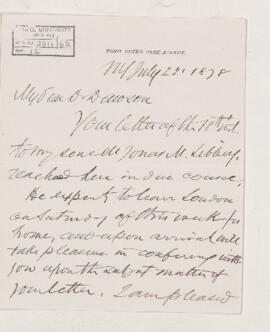 FORTY SEVEN PARK AVENUE.
NY July 22d 1878
My dear Dr Dawson
Your letter of the 18th inst.
to my son Mr Jonas M. Libbey
reached here in due course.
He expects to leave London
on Saturday of this week for
home, and upon arrival will
take pleasure in conferring with
you upon the subject matter of
your letter. I am pleased